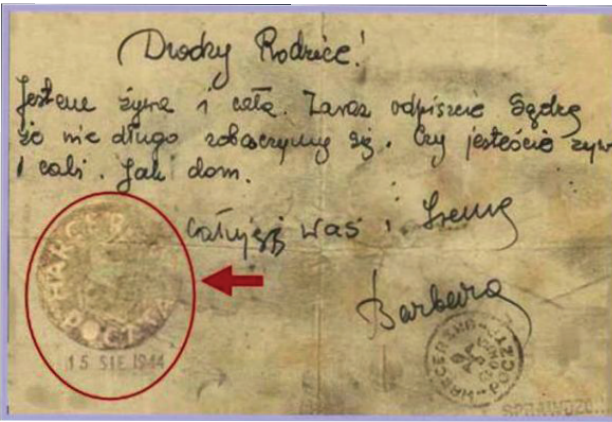 Drodzy Rodzice!
Jestem żywa i cała. Zaraz odpiszcie Sądzę
że nie długo zobaczymy się. Czy jesteście żyw
i cali. Jak dom.
Całuję was i Irenę
Barbara
HARCER POCZTA
15 SIE 1944
HARCERSKA POCZT
SPRAWDZO